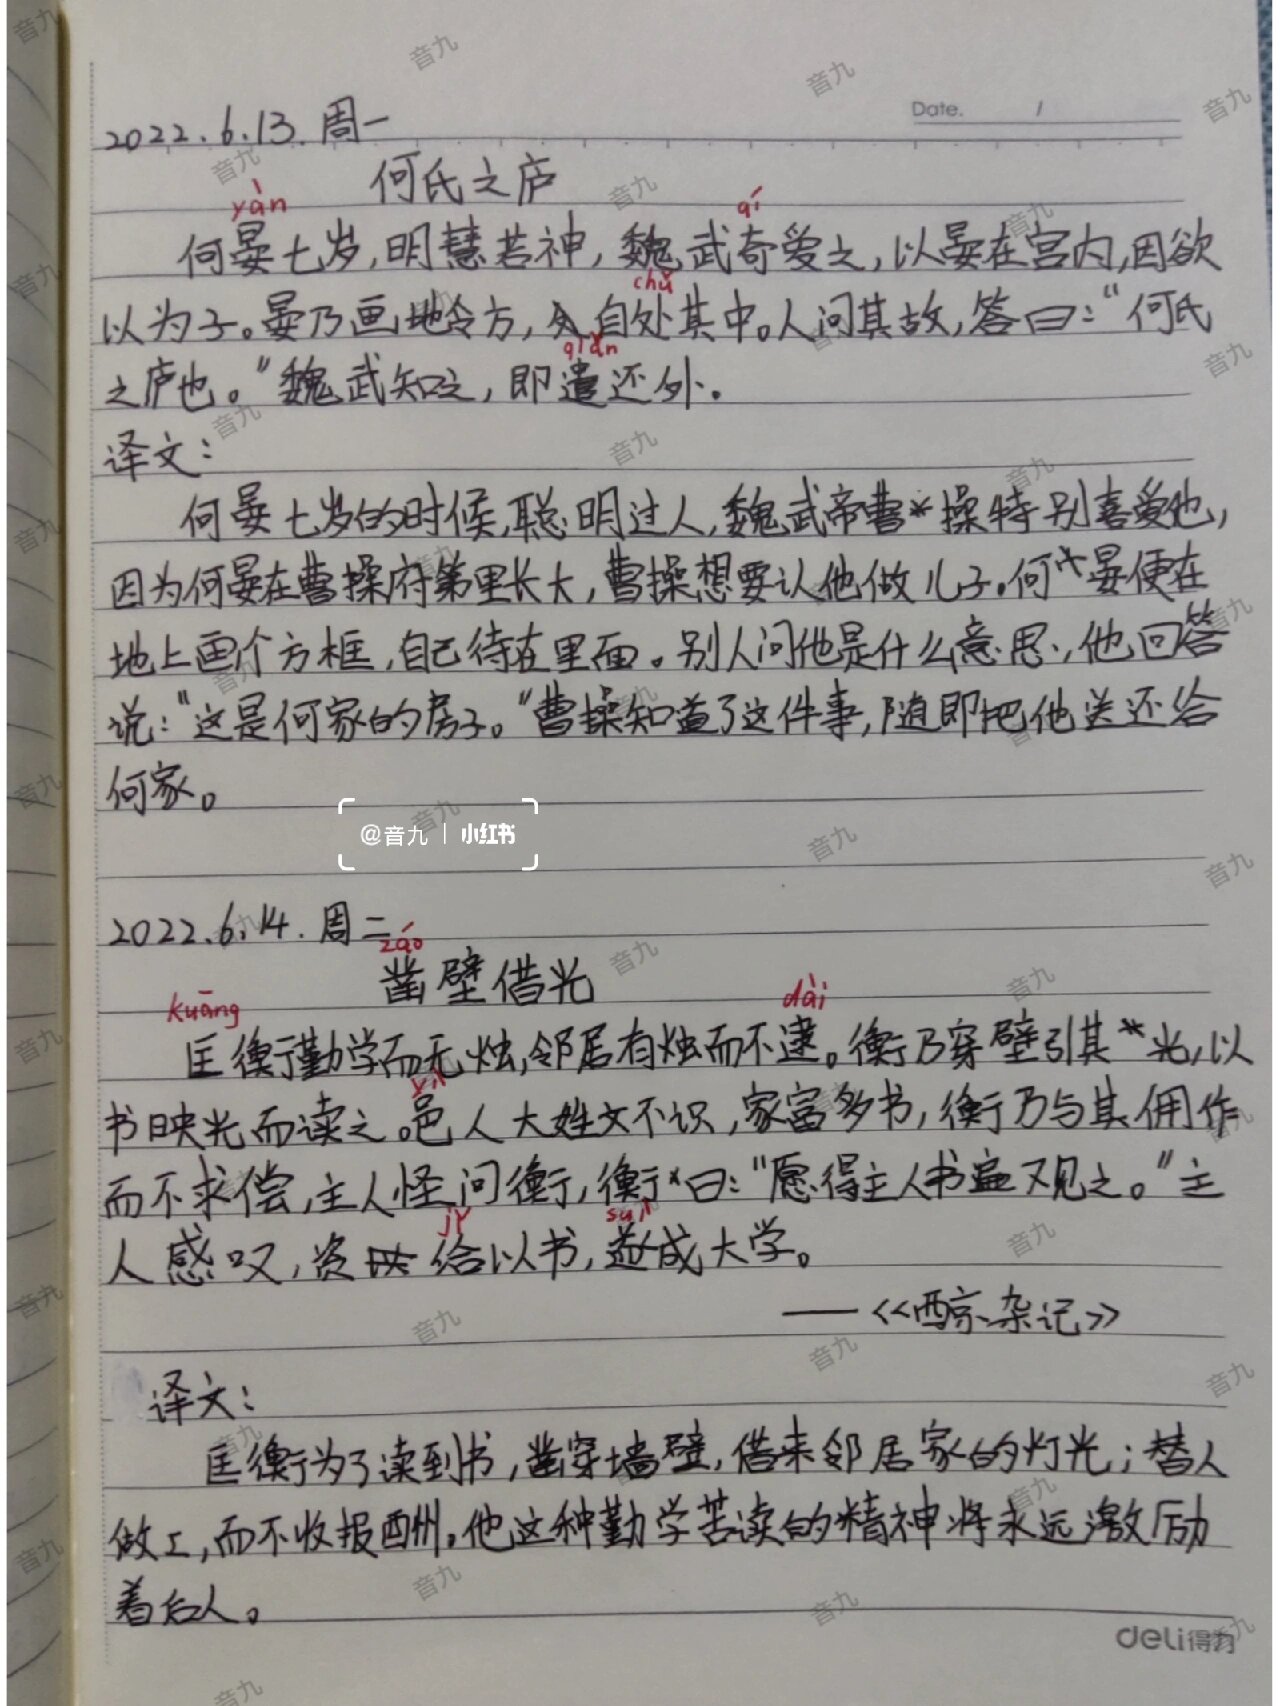 Date. /
2022.6.13.周一
何氏之庐
yàn qí
何晏七岁,明慧若神,魏武奇爱之,以晏在宫内,因欲
chǔ
以为子。晏乃画地令方,自处其中。人问其故,答曰:“何氏
qiǎn
之庐也。”魏武知之,即遣还外.
译文:
何晏七岁的时候,聪明过人,魏武帝曹操特别喜爱他,
因为何晏在曹操府第里长大,曹操想要认他做儿子。何晏便在
地上画个方框,自己待在里面。别人问他是什么意思,他回答
说:“这是何家的房子。”曹操知道了这件事,随即把他送还给
何家。
@音九 | 小红书
2022.6.14.周二
záo
凿壁借光
kuāng dài
匡衡勤学而无烛,邻居有烛而不逮。衡乃穿壁引其光,以
yì
书映光而读之。邑人大姓文不识,家富多书,衡乃与其佣作
而不求偿,主人怪问衡,衡曰:“愿得主人书遍又见之。”主
jǐ suì
人感叹,资给以书,遂成大学。
——《西京杂记》
译文:
匡衡为了读到书,凿穿墙壁,借来邻居家的灯光;替人
做工,而不收报酬。他这种勤学苦读的精神将永远激励
着后人。
deli得力
音九